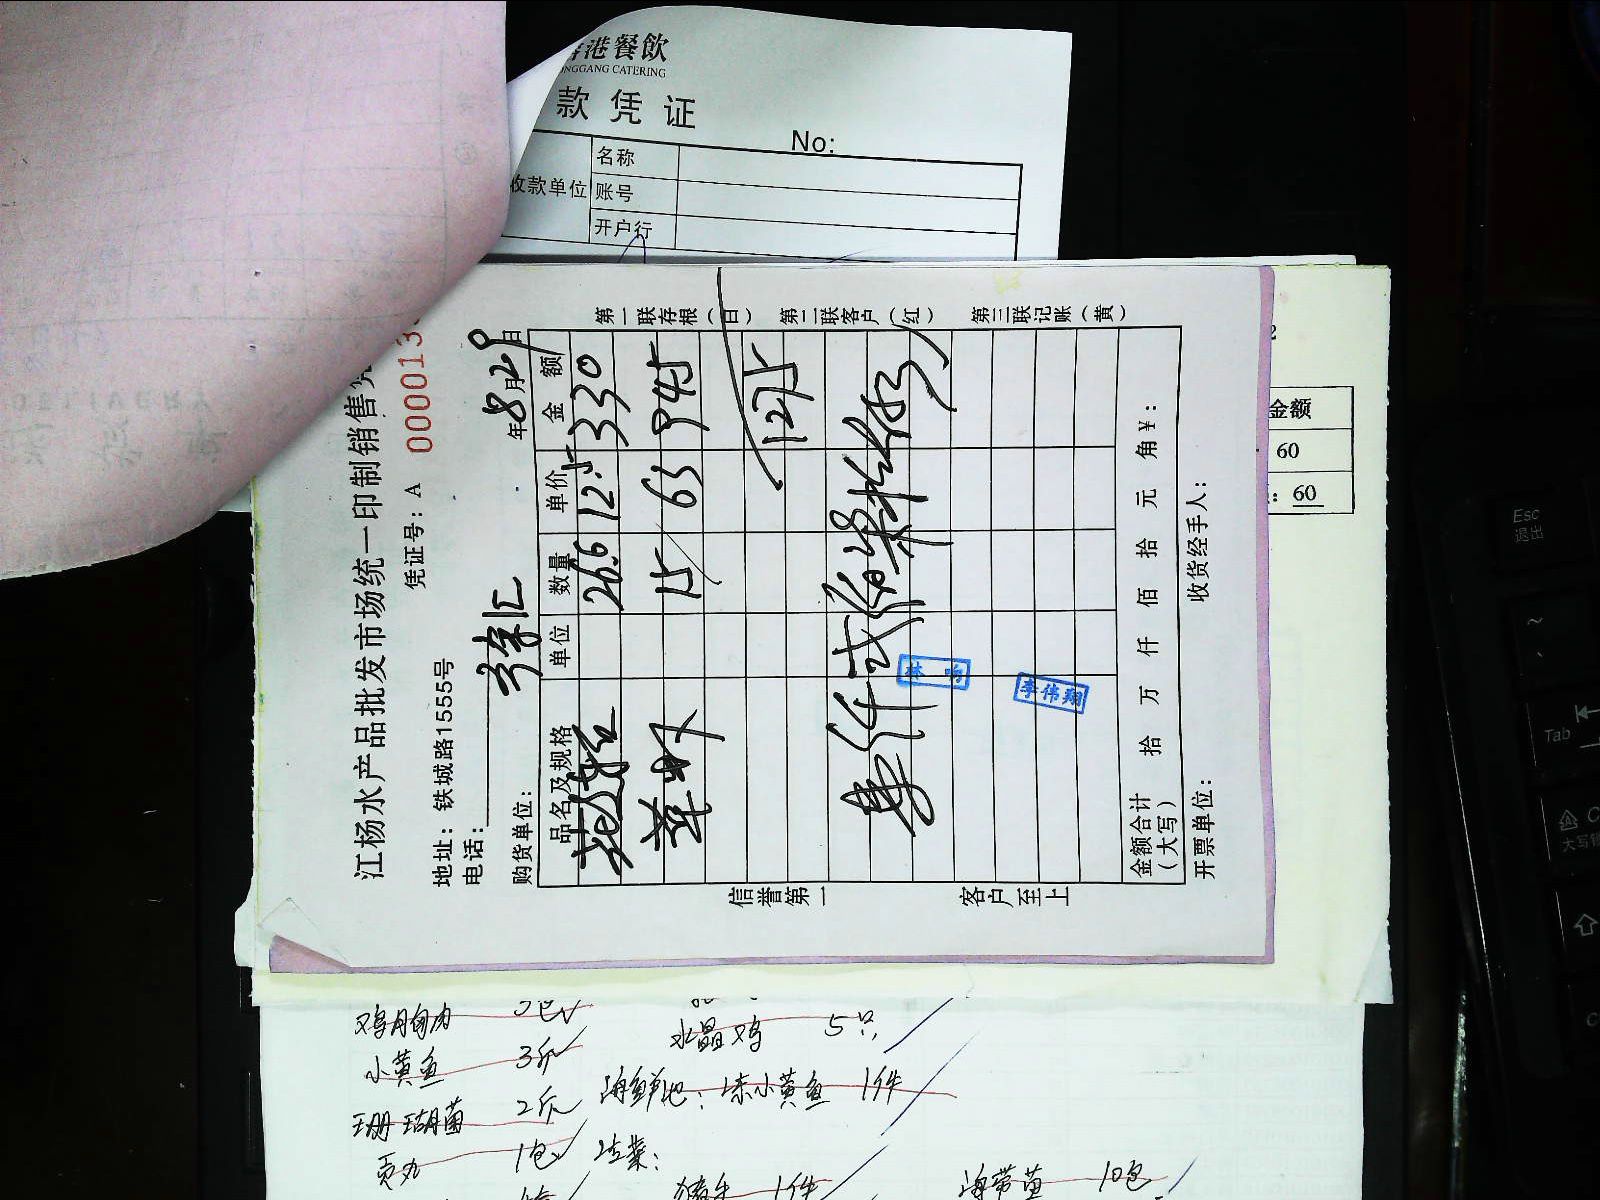 港餐饮
NGGANG CATERING
款凭证
No:
收款单位
名称
账号
开户行
江杨水产品批发市场统一印制销售
凭证号: A 000013
地址: 铁城路1555号
电话:
购货单位:
年8月29日
品名及规格 单位 数量 单价 金额
花蛤 26.6 12.5 330
15 63 945
1275
金额合计(大写) 拾 万 仟 佰 拾 元 角 ¥:
开票单位: 收货经手人:
第一联存根(白) 第二联客户(红) 第三联记账(黄)
信誉第一 客户至上
李伟翔
金额
60
: 60
鸡胸肉
水晶鸡 5只
小黄鱼 3斤
海鲜池: 冻小黄鱼 1件
珊瑚菌 2斤
贡丸 1包
1件
海带苗 10包
Esc
退出
Tab